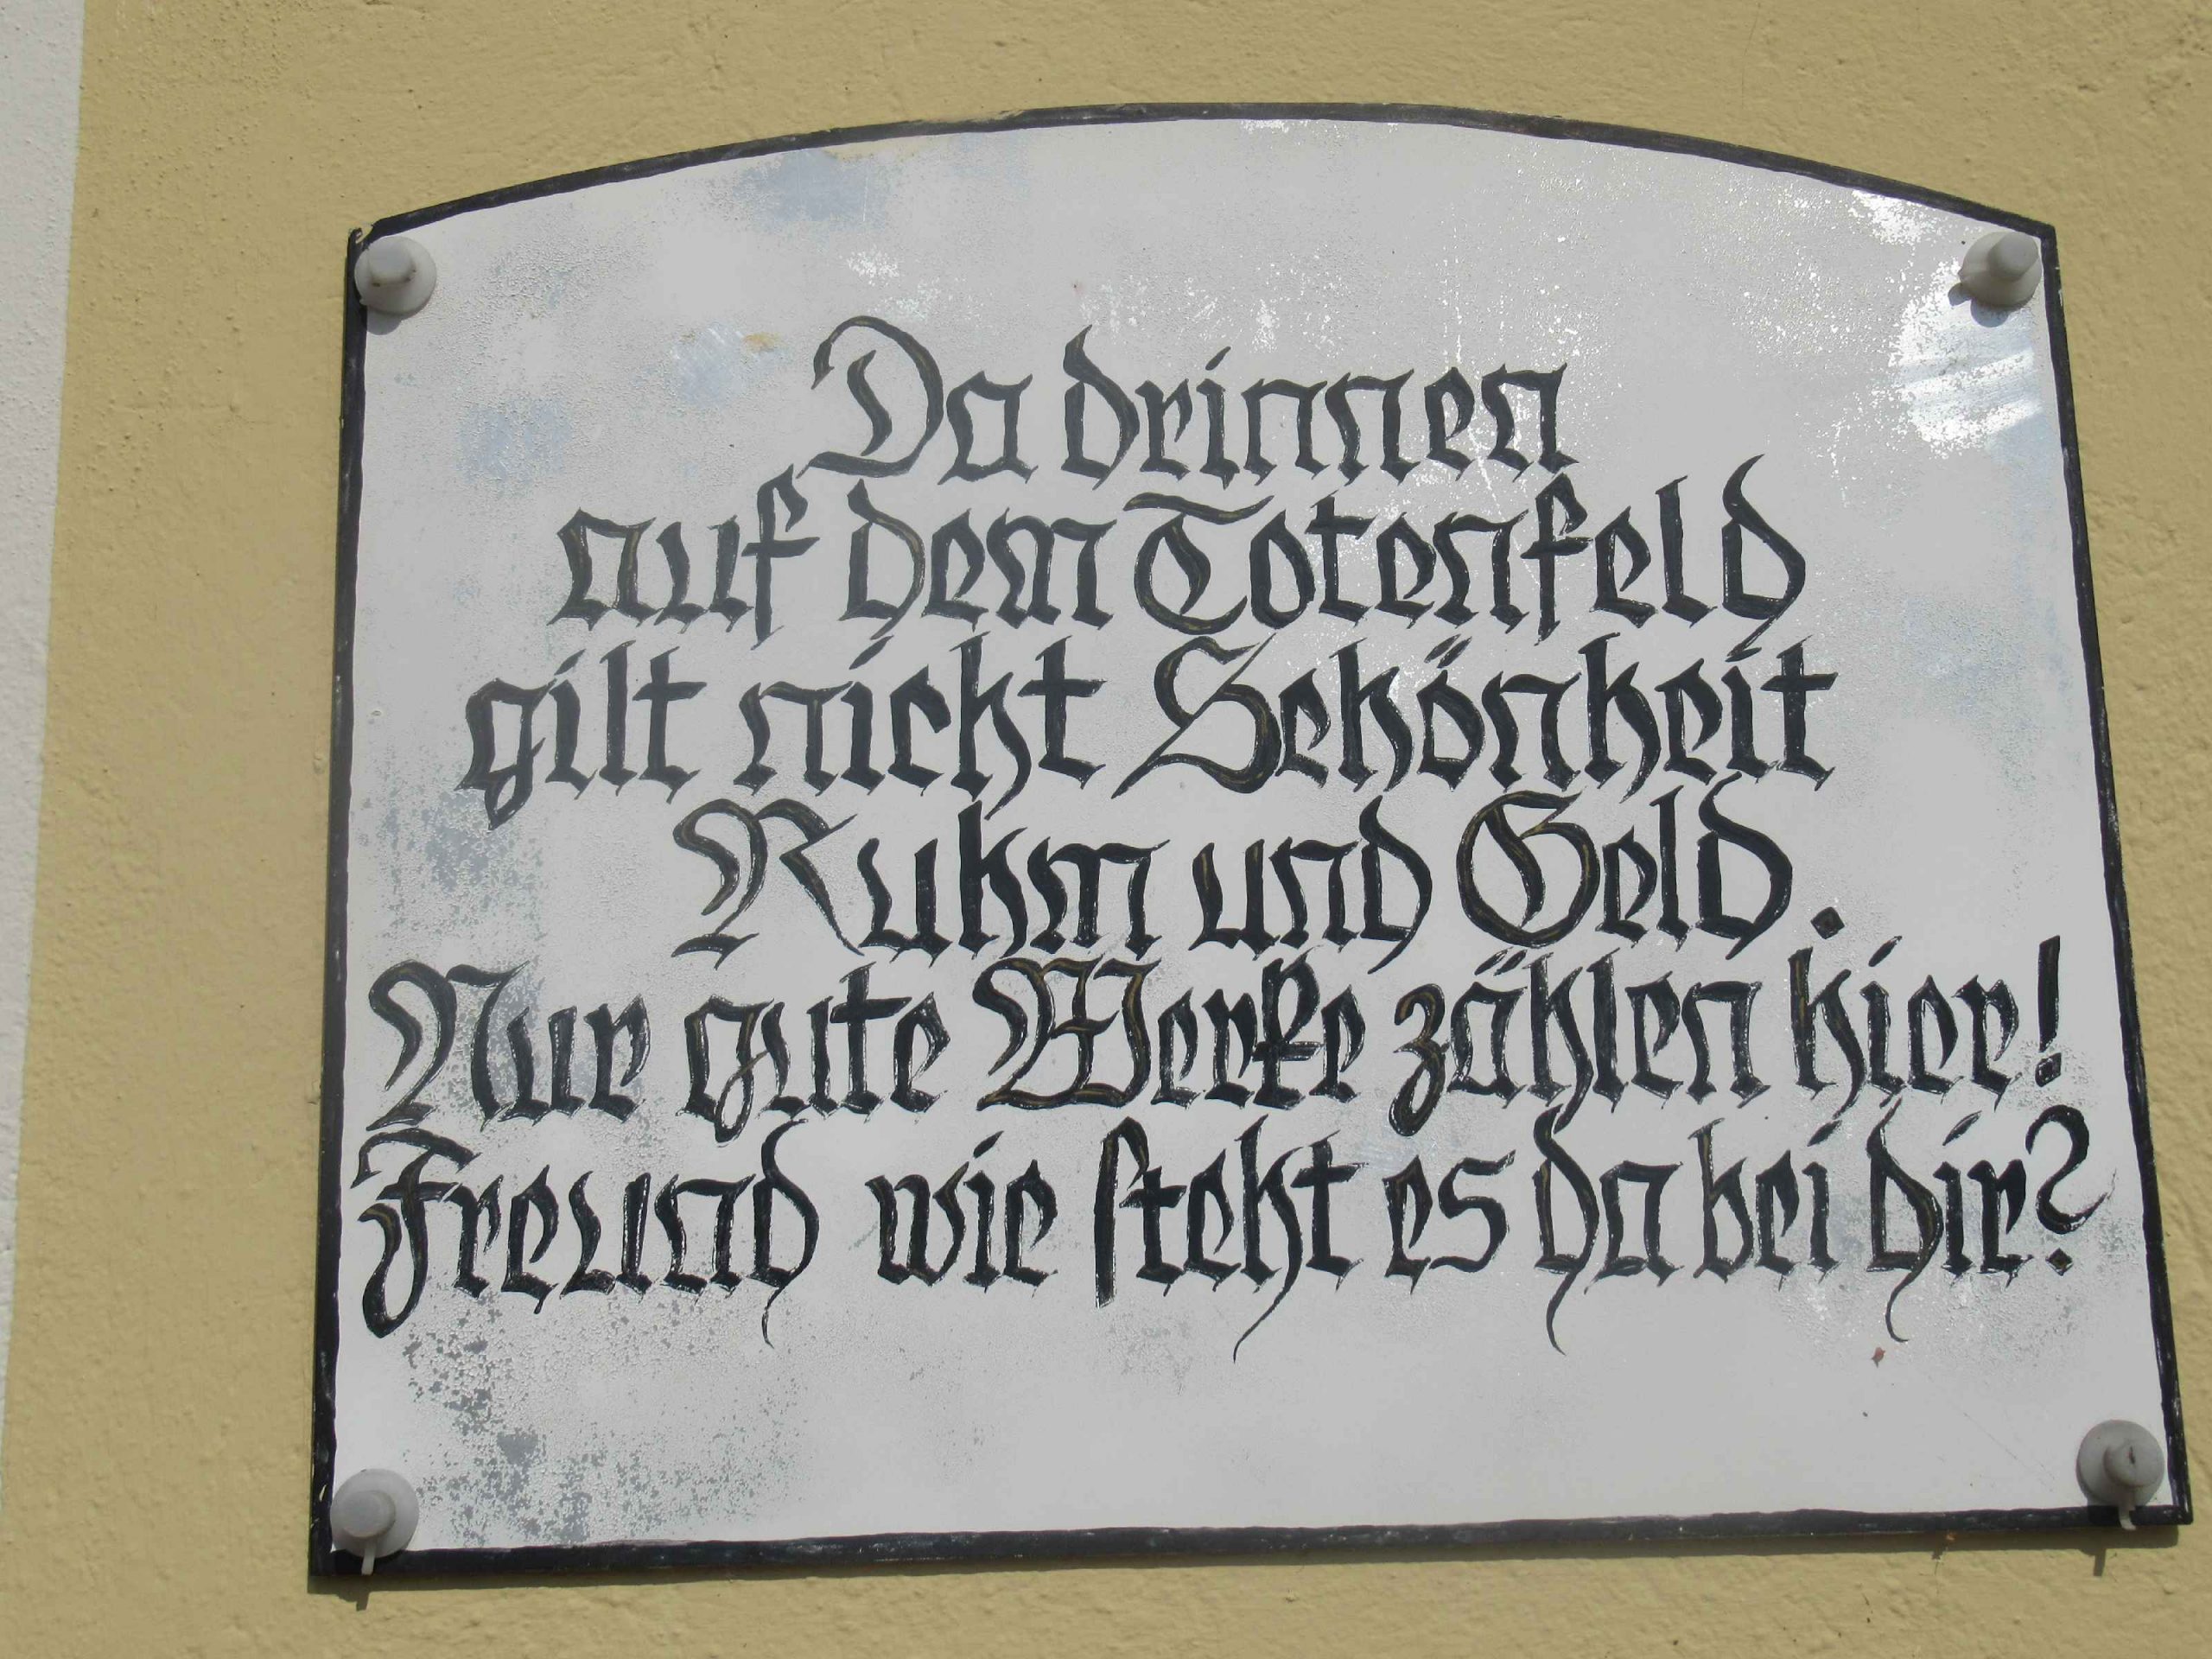 Da drinnen
auf dem Totenfeld
gilt nicht Schönheit
Ruhm und Geld.
Nur gute Werke zählen hier!
Freund wie steht es da bei dir?